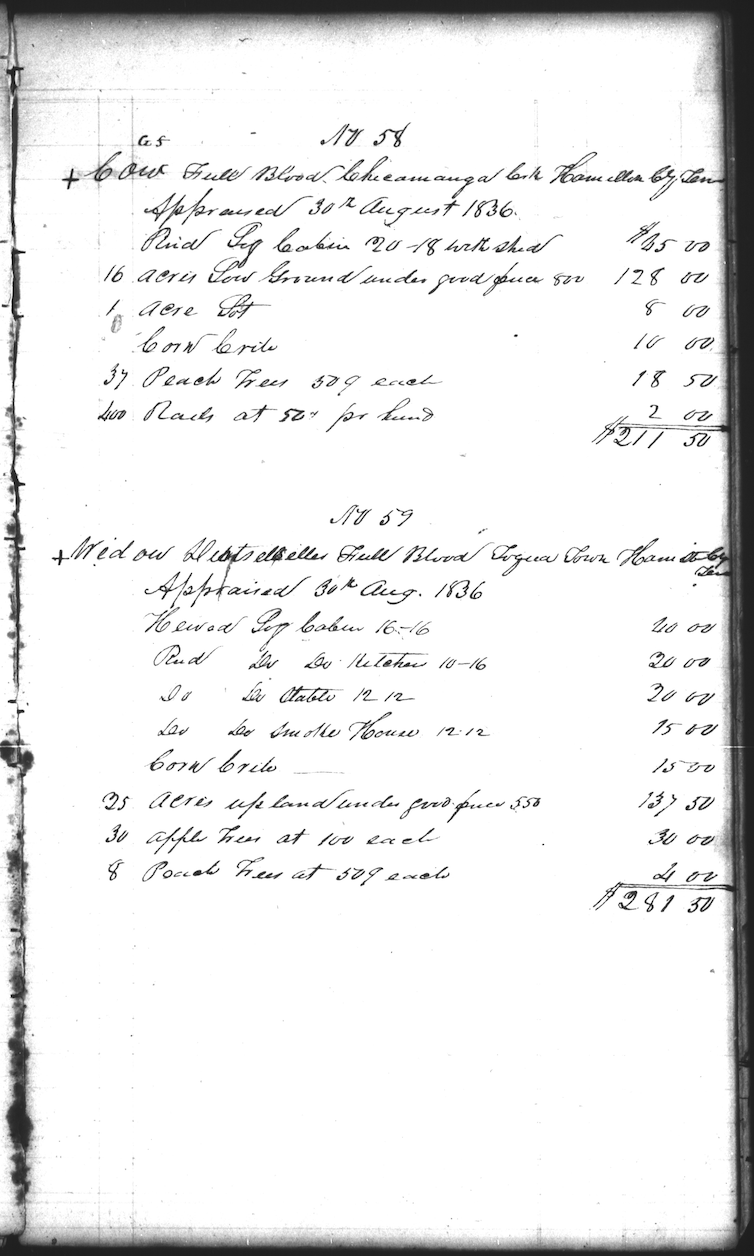 No 58
G S
+ Cow Full Blood Chicamauga Crk Hamilton Cty Ten
Appraised 30th August 1836.
Rnd Log Cabin 20-18 with shed $45 00
16 acres Low Ground under good fence 800 128 00
1 acre Lot 8 00
Corn Crib 10 00
37 Peach Trees 50¢ each 18 50
400 Rails at 50" pr hund 2 00
$211 50
No 59
+ Widow Full Blood Toqua Town Hamilt Cty
Ten
Appraised 30th Aug. 1836
Hewed Log Cabin 16-16 40 00
Rnd Do Do Kitchen 10-16 20 00
Do Do Stable 12 12 20 00
Do Do Smoke House 12-12 15 00
Corn Crib 15 00
25 Acres upland under good fence 5.50 137 50
30 apple Trees at 100 each 30 00
8 Peach Trees at 50¢ each 4 00
$281 50